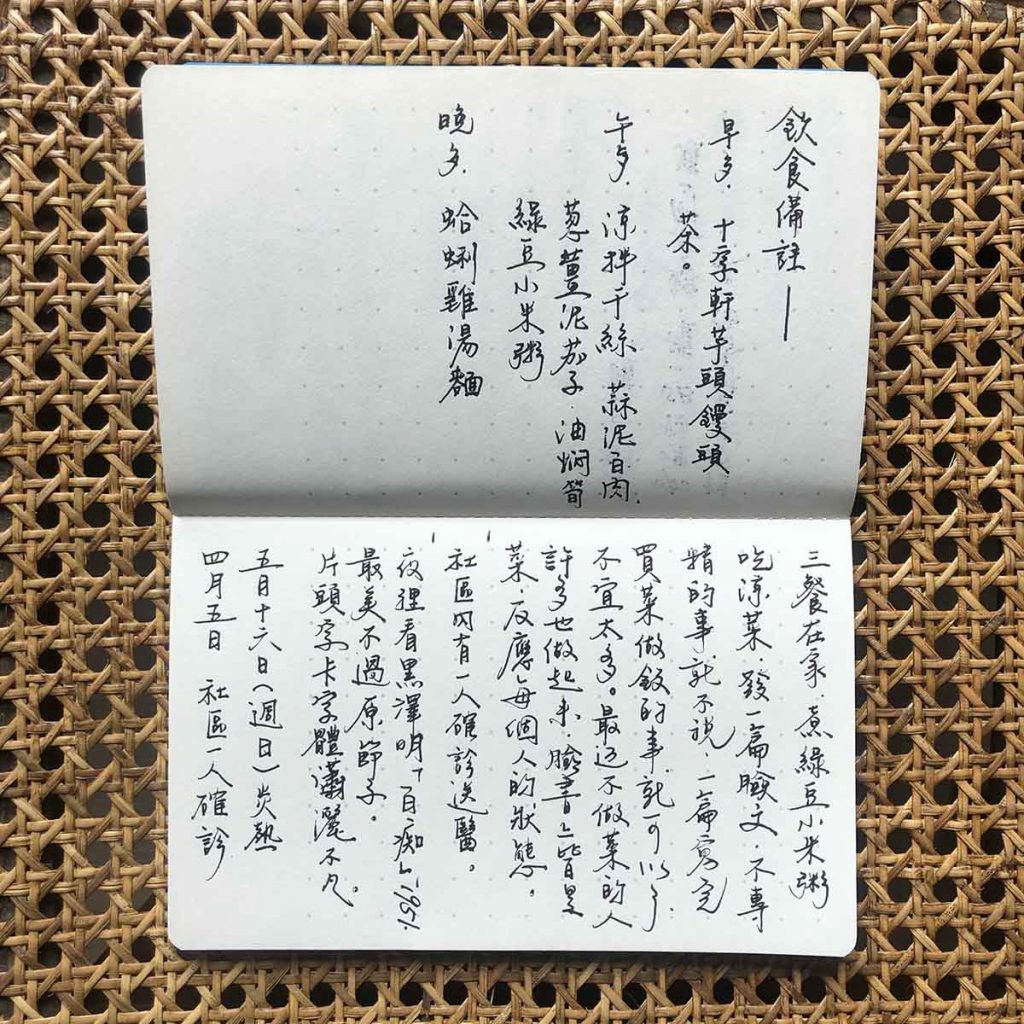 飲食備註——
早歺. 十字軒芋頭饅頭
茶。
午歺. 涼拌干絲. 蒜泥白肉.
蔥薑泥茄子. 油燜筍
綠豆小米粥
晚歺. 蛤蜊雞湯麵
三餐在家. 煮綠豆小米粥
吃涼菜. 發一篇臉文. 不專
精的事. 就不說. 一篇寫完
買菜做飯的事. 就可以了.
不宜太多。最近不做菜的人
許多也做起來. 臉書上皆是
菜. 反應每個人的狀態。
社區內有一人確診送醫。
夜裡看黑澤明「白痴」1951.
最美不過原節子。
片頭字卡字體瀟灑不凡。
五月十六日(週日)炎熱
四月五日 社區一人確診